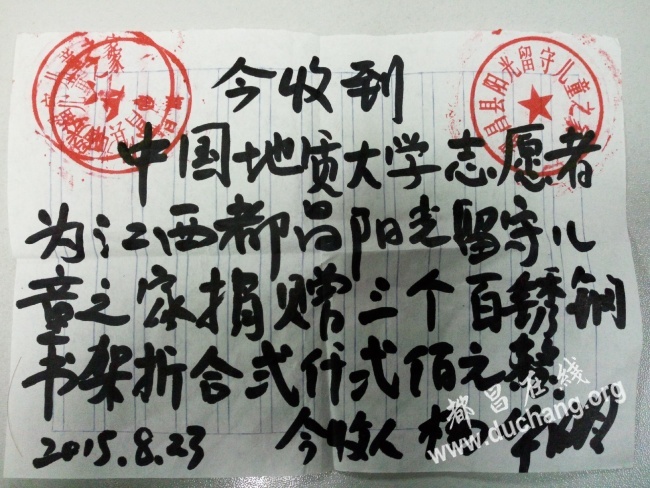 今收到
中国地质大学志愿者
为江西都昌阳光留守儿
童之家捐赠三个百锈钢
书架折合弍仟弍佰元整.
2015.8.23 今收人
都昌县阳光留守儿童之家
都昌在线
www.duchang.org